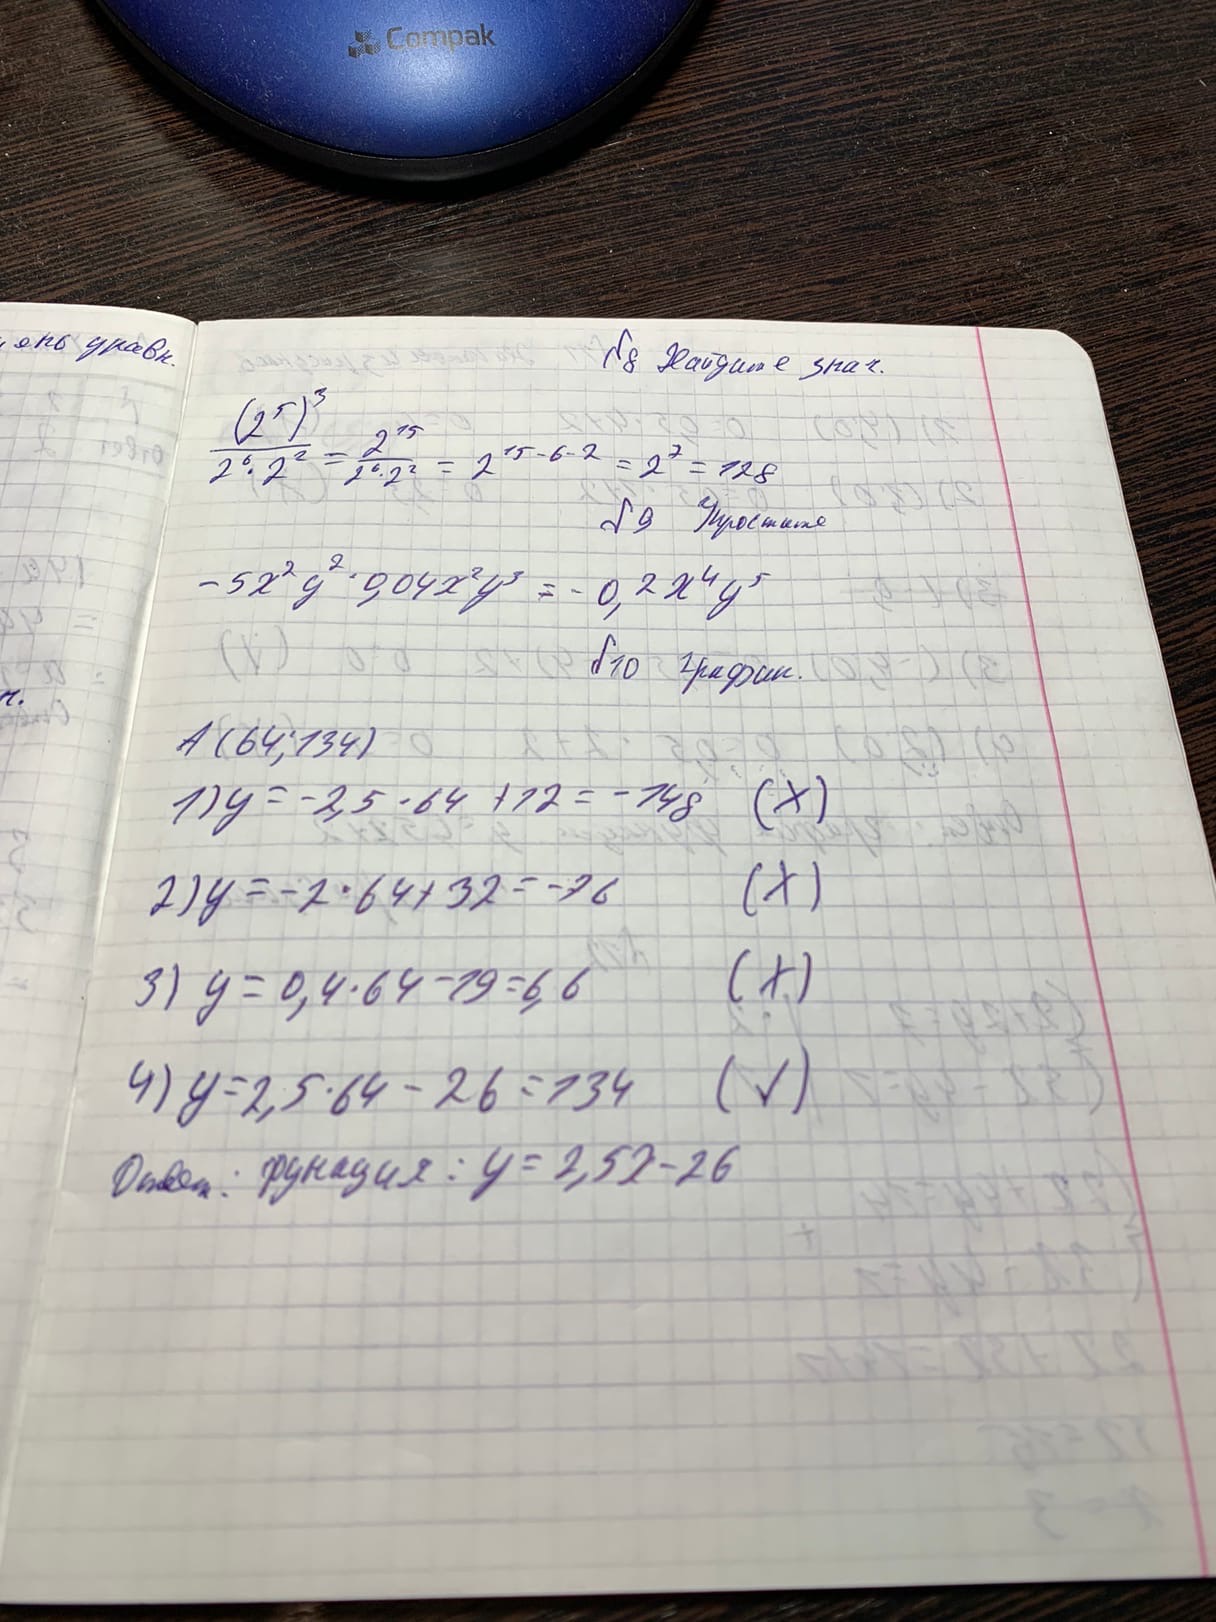 Compak
уравн.
№8 Найдите знач.
(2⁵)³/2⁶·2² = 2¹⁵/2⁶·2² = 2¹⁵⁻⁶⁻² = 2⁷ = 128
№9 Упростите
-5x²y²·0,04x²y³ = -0,2x⁴y⁵
№10 График.
A(64;134)
1) y = -2,5·64 + 12 = -148 (X)
2) y = -2·64 + 32 = -76 (X)
3) y = 0,4·64 - 19 = 6,6 (X)
4) y = 2,5·64 - 26 = 134 (✓)
Ответ: функция: y = 2,5x - 26